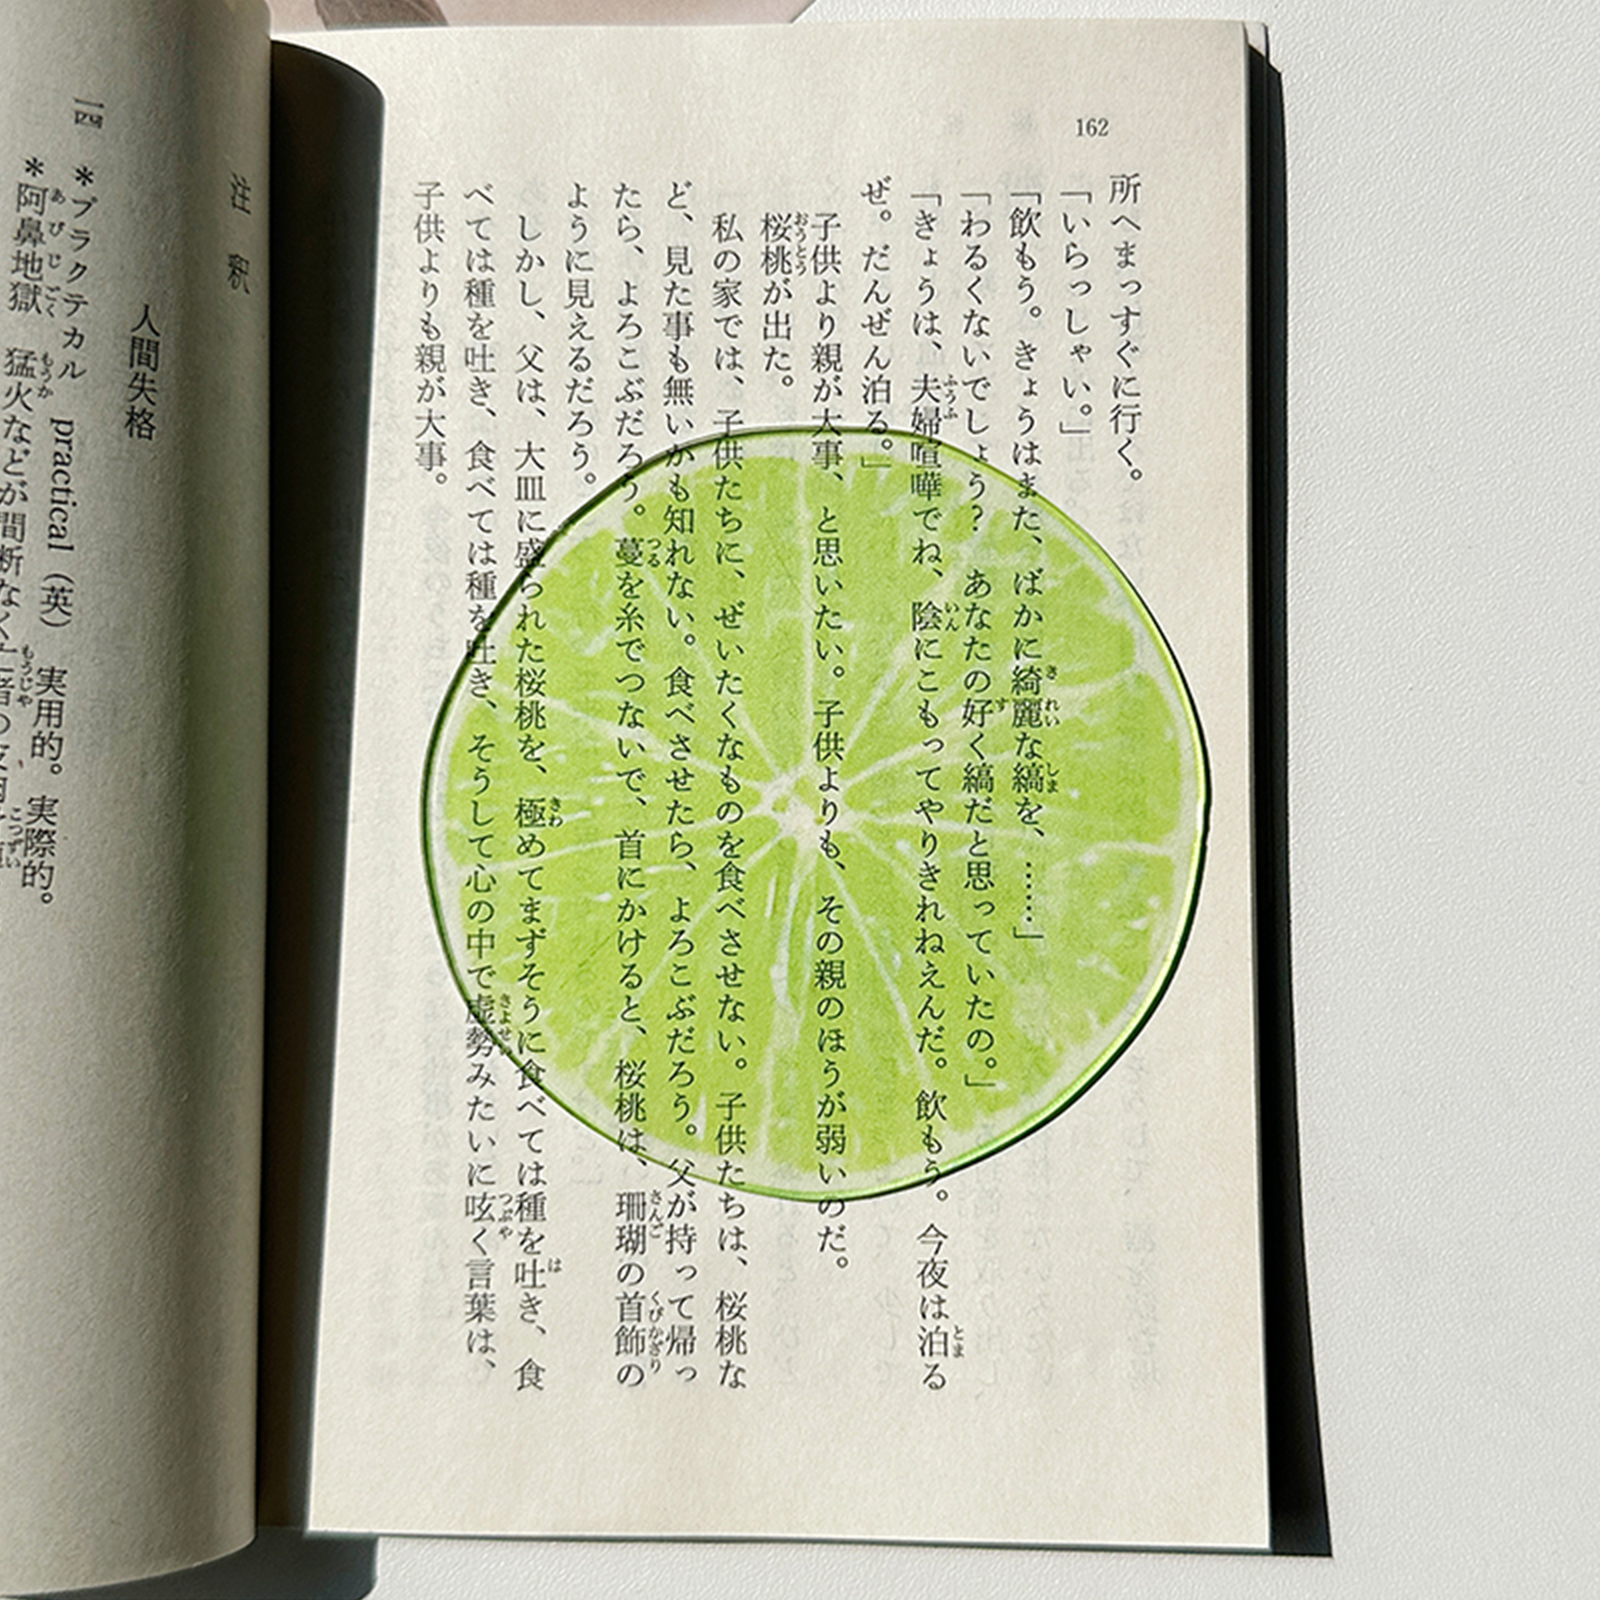 162
所へまっすぐに行く。
「いらっしゃい。」
「飲もう。きょうはまた、ばかに綺麗な縞を、……」
「わるくないでしょう? あなたの好く縞だと思っていたの。」
「きょうは、夫婦喧嘩でね、陰にこもってやりきれねえんだ。飲もう。今夜は泊る
ぜ。だんぜん泊る。」
子供より親が大事、と思いたい。子供よりも、その親のほうが弱いのだ。
桜桃が出た。
私の家では、子供たちに、ぜいたくなものを食べさせない。子供たちは、桜桃な
ど、見た事も無いかも知れない。食べさせたら、よろこぶだろう。父が持って帰っ
たら、よろこぶだろう。蔓を糸でつないで、首にかけると、桜桃は、珊瑚の首飾の
ように見えるだろう。
しかし、父は、大皿に盛られた桜桃を、極めてまずそうに食べては種を吐き、食
べては種を吐き、食べては種を吐き、そうして心の中で虚勢みたいに呟く言葉は、
子供よりも親が大事。
注釈
人間失格
一四 *プラクテカル practical(英) 実用的。実際的。
*阿鼻地獄 猛火などが間断なく亡者の